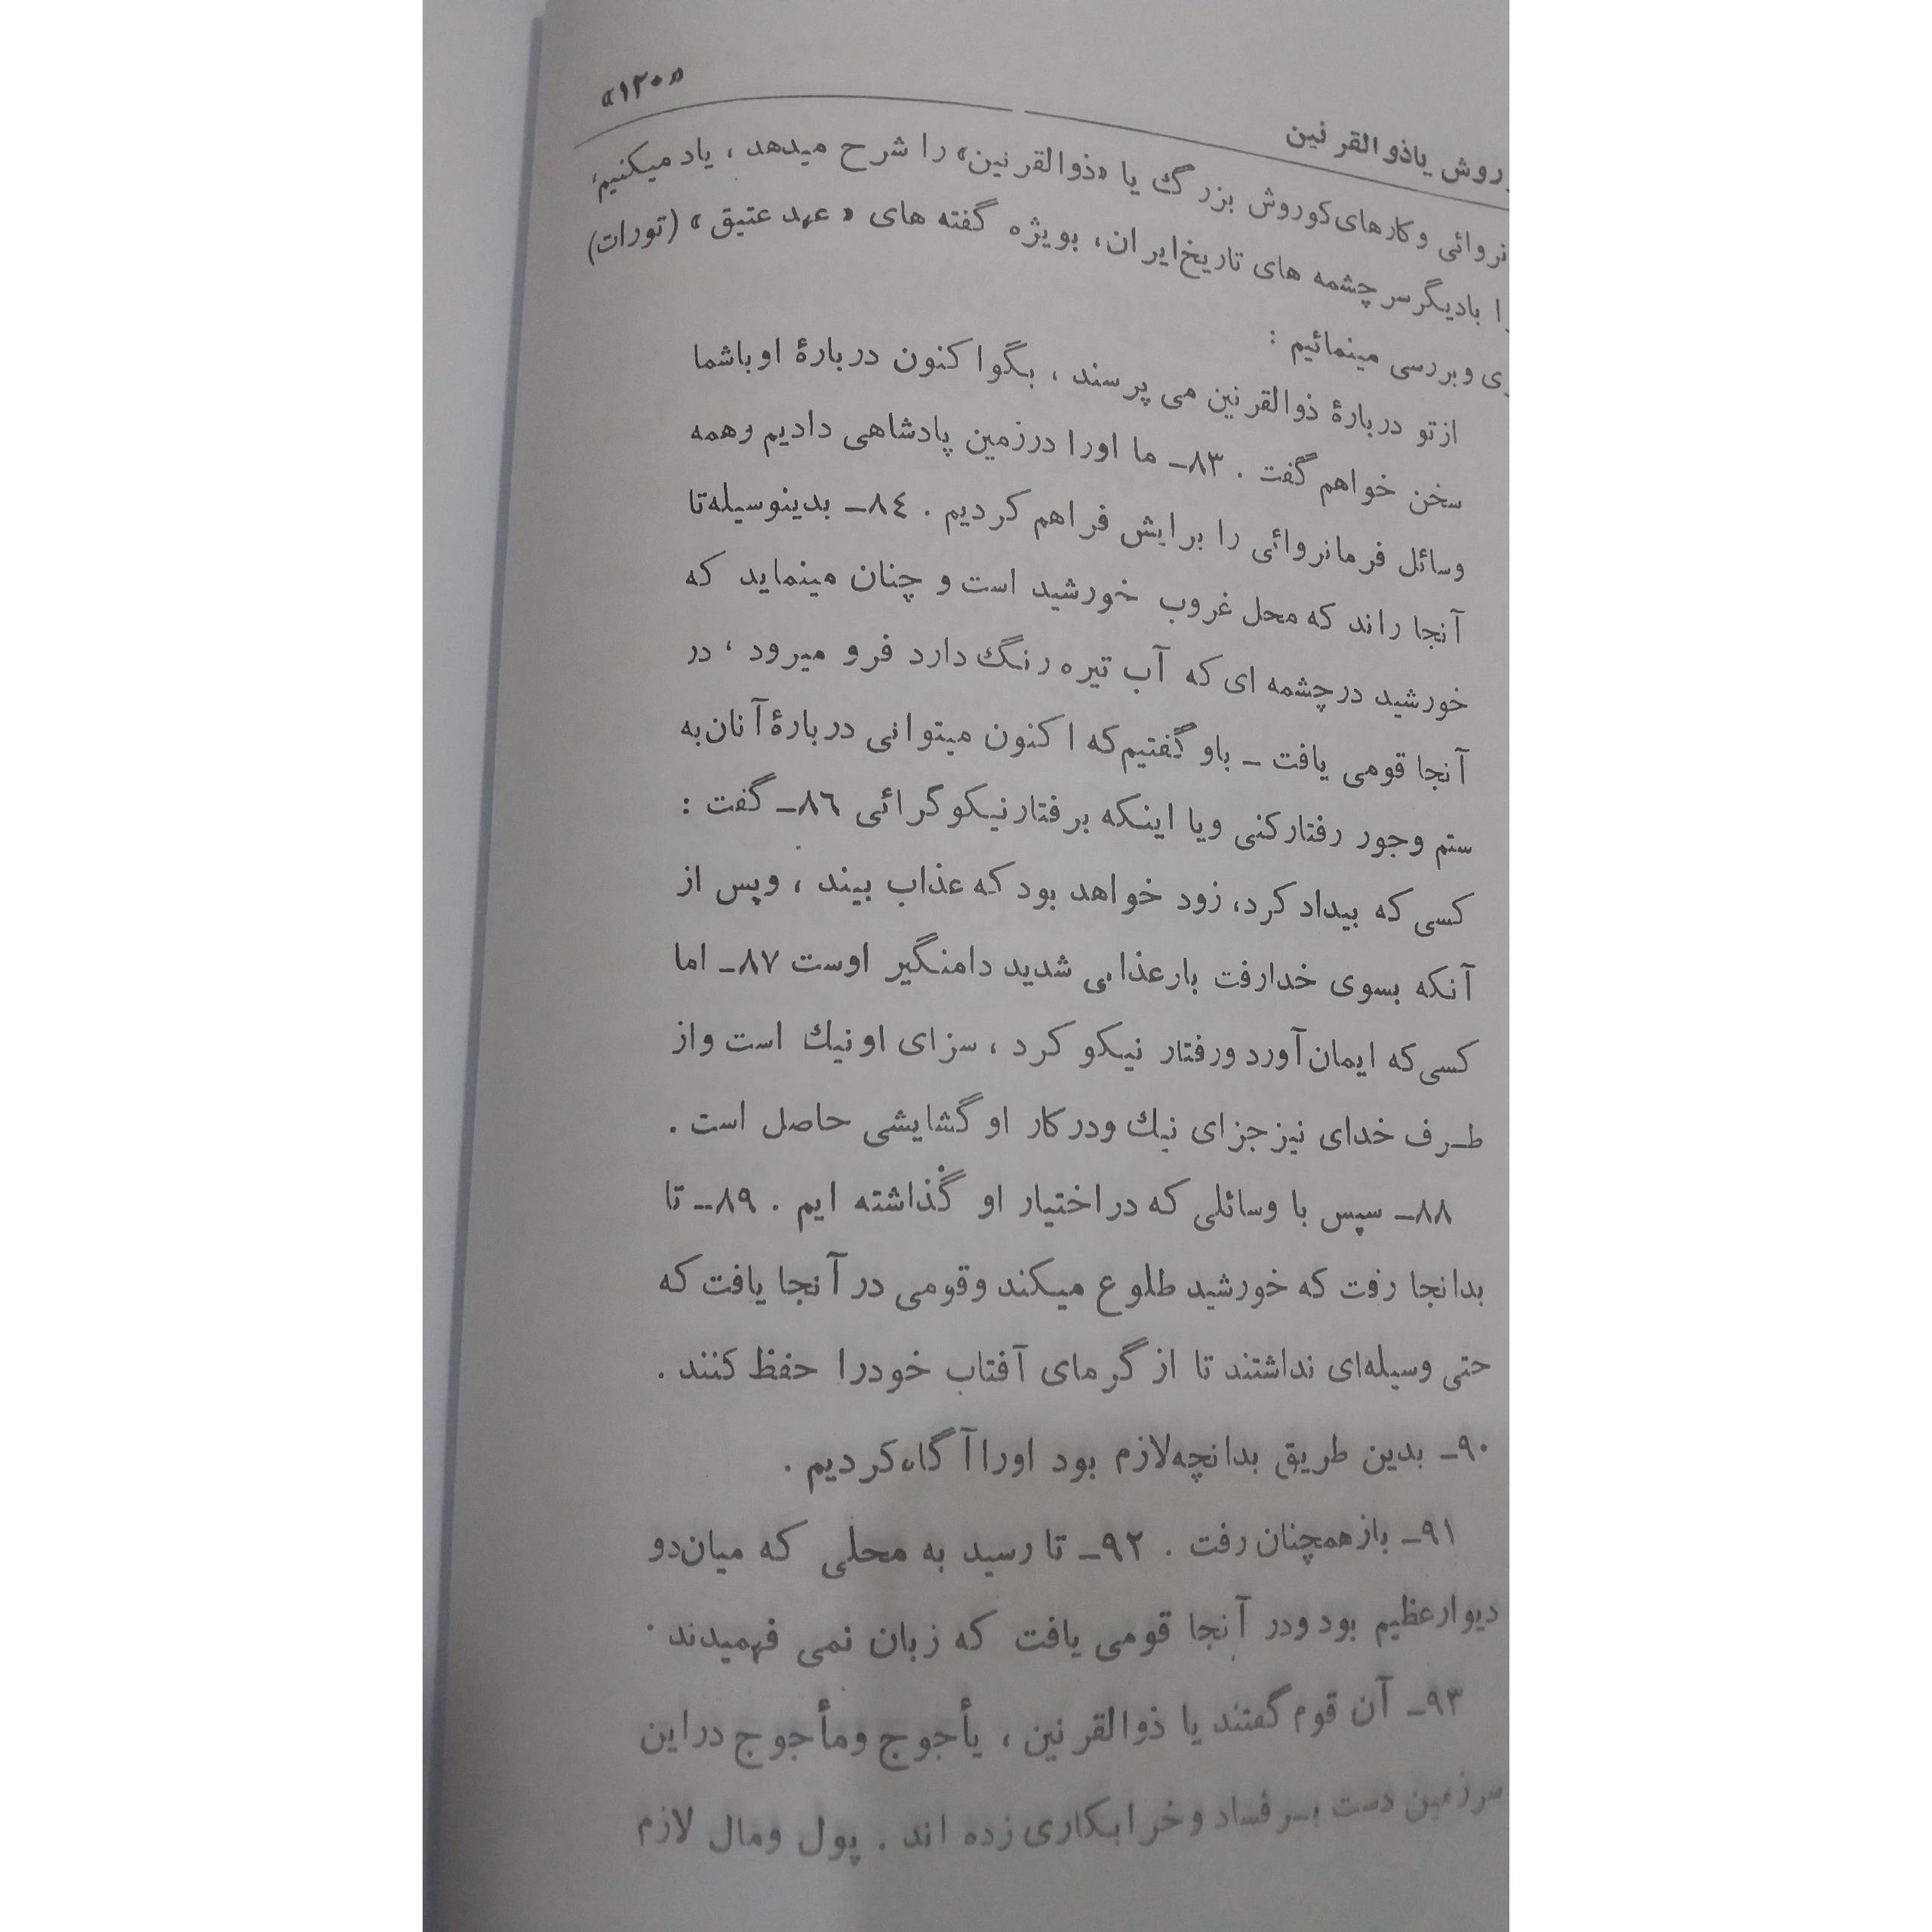 «۱۲۰»
روش یاذوالقرنین
نروائی وکارهای‌کوروش بزرگ یا «ذوالقرنین» را شرح میدهد ، یاد میکنیم،
ا بادیگرسرچشمه های تاریخ‌ایران، بویژه گفته های « عهد عتیق » (تورات)
ی وبررسی مینمائیم :
ازتو دربارهٔ ذوالقرنین می پرسند ، بگواکنون دربارهٔ اوباشما
سخن خواهم گفت . ۸۳ـ ما اورا درزمین پادشاهی دادیم وهمه
وسائل فرمانروائی را برایش فراهم کردیم . ۸٤ـ بدینوسیله‌تا
آنجا راند که محل غروب خورشید است و چنان مینماید که
خورشید درچشمه ای که آب تیره رنگ دارد فرو میرود ، در
آنجا قومی یافت ـ باو گفتیم‌که اکنون میتوانی دربارهٔ آنان‌به
ستم وجور رفتارکنی ویا اینکه برفتارنیکو گرائی ۸٦ـ گفت :
کسی که بیداد کرد، زود خواهد بود که عذاب بیند ، وپس از
آنکه بسوی خدارفت بارعذابی شدید دامنگیر اوست ۸۷ـ اما
کسی‌که ایمان‌آورد ورفتار نیکو کرد ، سزای اونیك است واز
طـرف خدای نیزجزای نیك ودرکار او گشایشی حاصل است .
۸۸ـ سپس با وسائلی که دراختیار او گذاشته ایم . ۸۹ـ تا
بدانجا رفت که خورشید طلوع میکند وقومی در آنجا یافت که
حتی وسیله‌ای نداشتند تا از گرمای آفتاب خودرا حفظ کنند .
۹۰ـ بدین طریق بدانچه‌لازم بود اوراآ گاه‌کردیم .
۹۱ـ بازهمچنان رفت . ۹۲ـ تا رسید به محلی که میان‌دو
دیوارعظیم بود ودر آنجا قومی یافت که زبان نمی فهمیدند .
۹۳ـ آن قوم گفتند یا ذوالقرنین ، یأجوج ومأجوج دراین
سرزمین دست بـرفساد وخرابکاری زده اند . پول ومال لازم